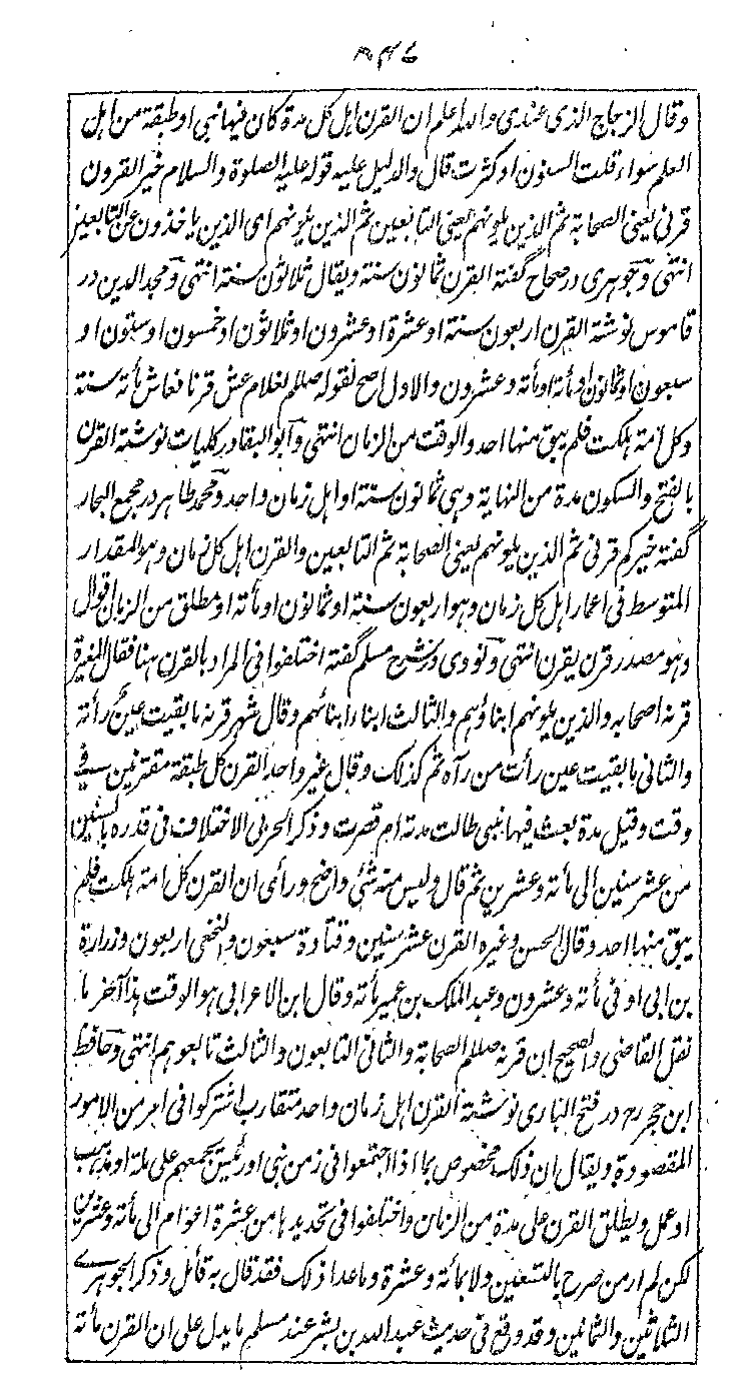 ۳۴۶
وقال الزجاج الذی عندی والله اعلم ان القرن اهل کل مدة کان فیها نبی او طبقة من اهل
العلم سواء قلت السنون او کثرت قال والدلیل علیه قوله علیه الصلوة والسلام خیر القرون
قرنی یعنی الصحابة ثم الذین یلونهم یعنی التابعین ثم الذین یلونهم ای الذین یاخذون عن التابعین
انتهی و جوهری در صحاح گفته القرن ثمانون سنة ویقال ثلاثون سنة انتهی و مجد الدین در
قاموس نوشته القرن اربعون سنة او عشرة او عشرون او ثلاثون او خمسون او ستون او
سبعون او ثمانون او مأة او مأة وعشرون والاول اصح لقوله صللم لغلام عش قرنا فعاش مأة سنة
وکل امة هلکت فلم یبق منها احد والوقت من الزمان انتهی و ابو البقا در کلیات نوشته القرن
بالفتح والسکون مدة من النهایة وهی ثمانون سنة او اهل زمان واحد و محمد طاهر در مجمع البحار
گفته خیرکم قرنی ثم الذین یلونهم یعنی الصحابة ثم التابعین والقرن اهل کل زمان وهو المقدار
المتوسط فی اعمار اهل کل زمان وهو اربعون سنة او ثمانون او مأة او مطلق من الزمان اقوال
وهو مصدر قرن یقرن انتهی و نووی در شرح مسلم گفته اختلفوا فی المراد بالقرن هنا فقال المغیرة
قرنه اصحابه والذین یلونهم ابناؤهم والثالث ابناء ابنائهم وقال شهر قرنه ما بقیت عین رأته
والثانی ما بقیت عین رأت من رآه ثم کذلک وقال غیر واحد القرن کل طبقة مقترنین فی
وقت وقیل مدة بعث فیها نبی طالت مدته ام قصرت وذکر الحربی الاختلاف فی قدره بالسنین
من عشر سنین الی مأة وعشرین ثم قال ولیس منه شئ واضح ورأی ان القرن کل امة هلکت فلم
یبق منها احد وقال الحسن وغیره القرن عشر سنین وقتادة سبعون والنخعی اربعون وزرارة
بن ابی اوفی مأة وعشرون وعبد الملک بن عمیر مأة وقال ابن الاعرابی هو الوقت هذا آخر ما
نقل القاضی والصحیح ان قرنه صللم الصحابة والثانی التابعون والثالث تابعوهم انتهی و حافظ
ابن حجر رح در فتح الباری نوشته القرن اهل زمان واحد متقارب اشترکوا فی امر من الامور
المقصودة ویقال ان ذلک مخصوص بما اذا اجتمعوا فی زمن نبی او رئیس یجمعهم علی ملة او مذهب
او عمل ویطلق القرن علی مدة من الزمان واختلفوا فی تحدیدها من عشرة اعوام الی مأة وعشرین
لکن لم ار من صرح بالتسعین ولا بمأة وعشرة وما عدا ذلک فقد قال به قائل وذکر الجوهری
الثلاثین والثمانین وقد وقع فی حدیث عبدالله بن بسر عند مسلم ما یدل علی ان القرن مأة